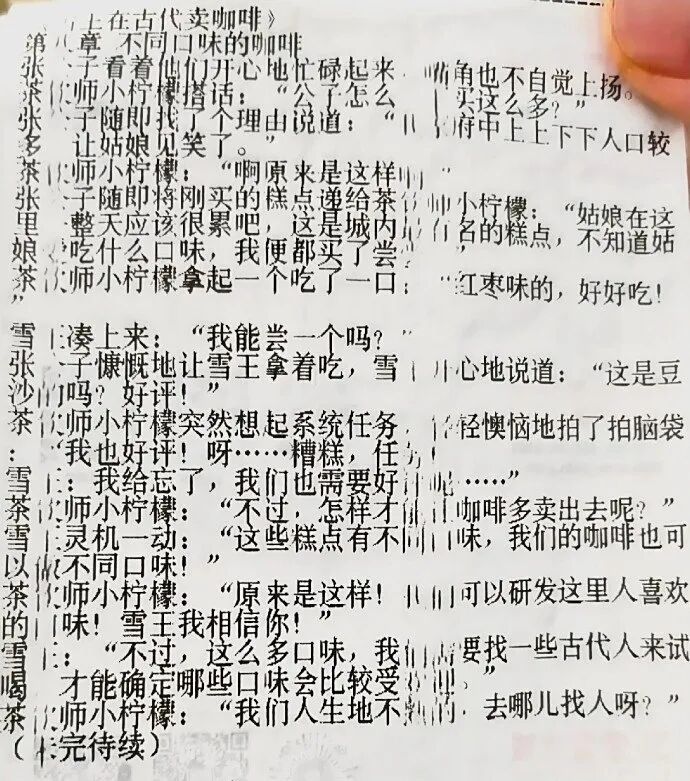 上在古代卖咖啡》
第 章 不同口味的咖啡
张 子看着他们开心地忙碌起来 角也不自觉上扬。
茶饮师小柠檬搭话：“公子怎么 买这么多？”
张 子随即找了个理由说道：“ 府中上上下下人口较
多 让姑娘见笑了。”
茶饮师小柠檬：“啊原来是这样
张 子随即将刚买的糕点递给茶 小柠檬：“姑娘在这
里 整天应该很累吧，这是城内 名的糕点，不知道姑
娘 吃什么口味，我便都买了尝
茶饮师小柠檬拿起一个吃了一口：“红枣味的，好好吃！
”
雪王凑上来：“我能尝一个吗？”
张 子慷慨地让雪王拿着吃，雪 心地说道：“这是豆
沙 吗？好评！”
茶饮师小柠檬突然想起系统任务， 轻懊恼地拍了拍脑袋
：“我也好评！呀……糟糕，任
雪王：我给忘了，我们也需要好 ……”
茶饮师小柠檬：“不过，怎样才能 咖啡多卖出去呢？”
雪王灵机一动：“这些糕点有不同 味，我们的咖啡也可
以 不同口味！”
茶饮师小柠檬：“原来是这样！我们可以研发这里人喜欢
的 味！雪王我相信你！”
雪王：“不过，这么多口味，我 要找一些古代人来试
喝 才能确定哪些口味会比较受 。”
茶饮师小柠檬：“我们人生地不 ，去哪儿找人呀？”
（未完待续）